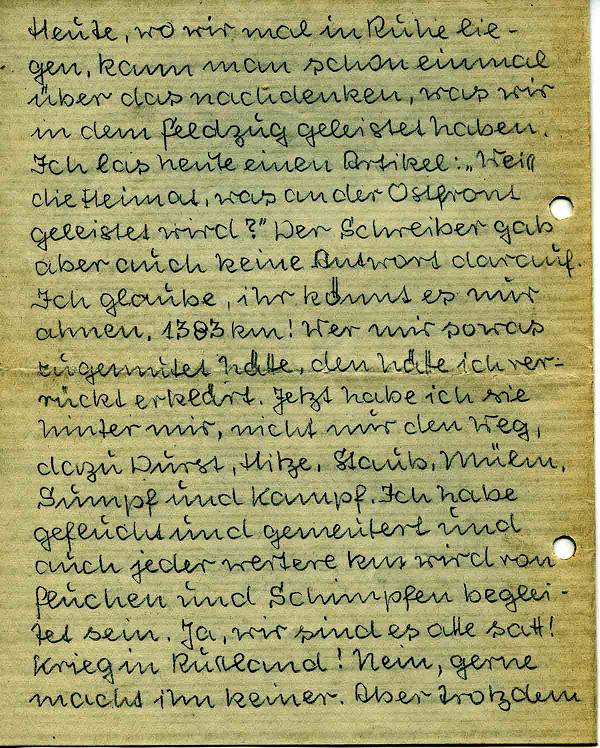 Heute, wo wir mal in Ruhe lie-
gen, kann man schon einmal
über das nachdenken, was wir
in dem Feldzug geleistet haben.
Ich las heute einen Artikel: „Weiß
die Heimat, was an der Ostfront
geleistet wird?" Der Schreiber gab
aber auch keine Antwort darauf.
Ich glaube, ihr könnt es nur
ahnen, 1383 km! Wer mir sowas
zugemutet hätte, den hätte ich ver-
rückt erklärt. Jetzt habe ich sie
hinter mir, nicht nur den Weg,
dazu Durst, Hitze, Staub, Mülm,
Sumpf und Kampf. Ich habe
geflucht und gemeutert und
auch jeder weitere km wird von
fluchen und Schimpfen beglei-
tet sein. Ja, wir sind es alle satt!
Krieg in Rußland! Nein, gerne
macht ihn keiner. Aber trotzdem